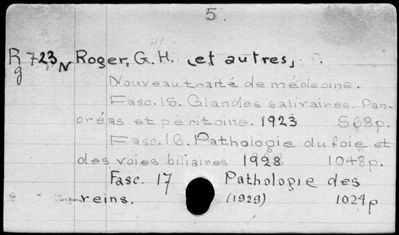 5.
R 723 N Roger, G. H. (et autres)
g
Nouveau traité de médecine.
Fasc. 15. Glandes salivaires. Pan-
créas et peritoine. 1923 568p.
Fasc. 16. Pathologie du foie et
des voies biliaires 1928 1048p.
Fasc. 17 Pathologie des
reins. (1929) 1024p